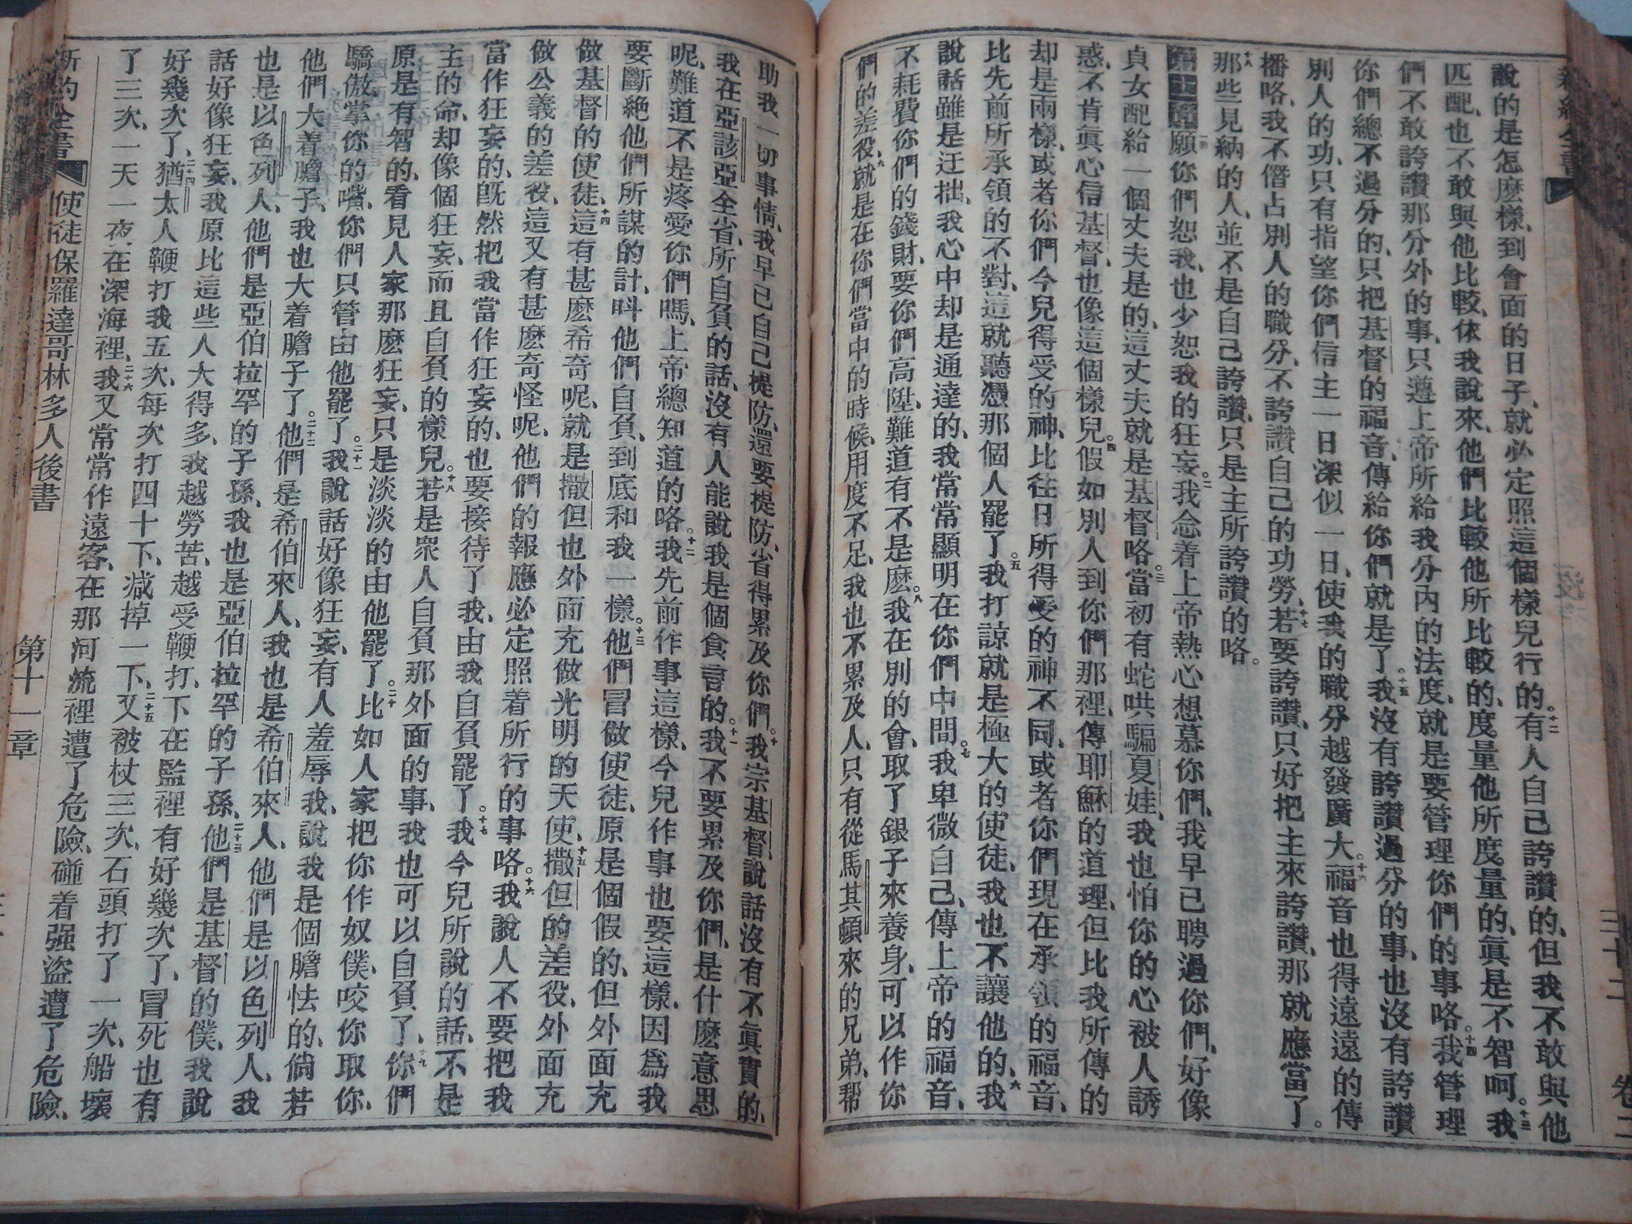 說的是怎麽樣、到會面的日子、就必定照這個樣兒行的。十二有人自己誇讚的、但我不敢與他
匹配、也不敢與他比較、依我說來、他們比較他所比較的、度量他所度量的、眞是不智呵。十三我
們不敢誇讚那分外的事、只遵上帝所給我分內的法度、就是要管理你們的事略。十四我管理
你們總不過分的、只把基督的福音、傳給你們就是了。十五我沒有誇讚過分的事、也沒有誇讚
別人的功、只有指望你們信主一日深似一日、使我的職分越發廣大。十六福音也得遠遠的傳
播咯、我不僭占別人的職分、不誇讚自己的功勞。十七若要誇讚、只好把主來誇讚、那就應當了。
十八那些見納的人、並不是自己誇讚、只是主所誇讚的咯。
第十一章一願你們恕我、也少恕我的狂妄。二我念着上帝熱心想慕你們、我早已聘過你們、好像
貞女配給一個丈夫是的、這丈夫就是基督咯。三當初有蛇哄騙夏娃、我也怕你的心被人誘
惑、不肯眞心信基督、也像這個樣兒。四假如別人到你們那裡、傳耶穌的道理、但比我所傳的
却是兩樣、或者你們今兒得受的神、比往日所得受的神不同、或者你們現在承領的福音、
比先前所承領的不對、這就聽憑那個人罷了。五我打諒就是極大的使徒、我也不讓他的、六我
說話雖是迂拙、我心中却是通達的、我常常顯明在你們中間。七我卑微自己、傳上帝的福音、
不耗費你們的錢財、要你們高陞、難道有不是麽。八我在別的會、取了銀子來養身、可以作你
們的差役、九就是在你們當中的時候、用度不足、我也不累及人、只有從馬其頓來的兄弟、幫
助我一切事情、我早已自己提防、還要提防、省得累及你們。十我宗基督、說話沒有不眞實的、
我在亞該亞全省、所自負的話、沒有人能說我是個食言的。十一我不要累及你們、是什麽意思
呢、難道不是疼愛你們嗎、上帝總知道的咯。十二我先前作事這樣、今兒作事也要這樣、因爲我
要斷絕他們所謀的計、呌他們自負、到底和我一樣。十三他們冒做使徒、原是個假的、但外面充
做基督的使徒、十四這有甚麽希奇呢、就是撒但也外面充做光明的天使、十五撒但的差役、外面充
做公義的差役、這又有甚麽奇怪呢、他們的報應必定照着所行的事咯。十六我說人不要把我
當作狂妄的、旣然把我當作狂妄的、也要接待了我、由我自負罷了。十七我今兒所說的話、不是
主的命、却像個狂妄、而且自負的樣兒。十八若是衆人自負那外面的事、我也可以自負了、十九你們
原是有智的、看見人家那麽狂妄、只是淡淡的由他罷了。二十比如人家把你作奴僕、咬你取你、
驕傲掌你的嘴、你們只管由他罷了。二十一我說話好像狂妄、有人羞辱我、說我是個膽怯的、倘若
他們大着膽子、我也大着膽子了。二十二他們是希伯來人、我也是希伯來人、他們是以色列人、我
也是以色列人、他們是亞伯拉罕的子孫、我也是亞伯拉罕的子孫、二十三他們是基督的僕、我說
話好像狂妄、我原比這些人大得多、我越勞苦、越受鞭打、下在監裡有好幾次了、冒死也有
好幾次了、二十四猶太人鞭打我五次、每次打四十下、減掉一下、二十五又被杖三次、石頭打了一次、船壞
了三次、一天一夜、在深海裡、二十六我又常常作遠客、在那河流裡遭了危險、碰着强盜遭了危險、
新約全書 使徒保羅達哥林多人後書 第十一章